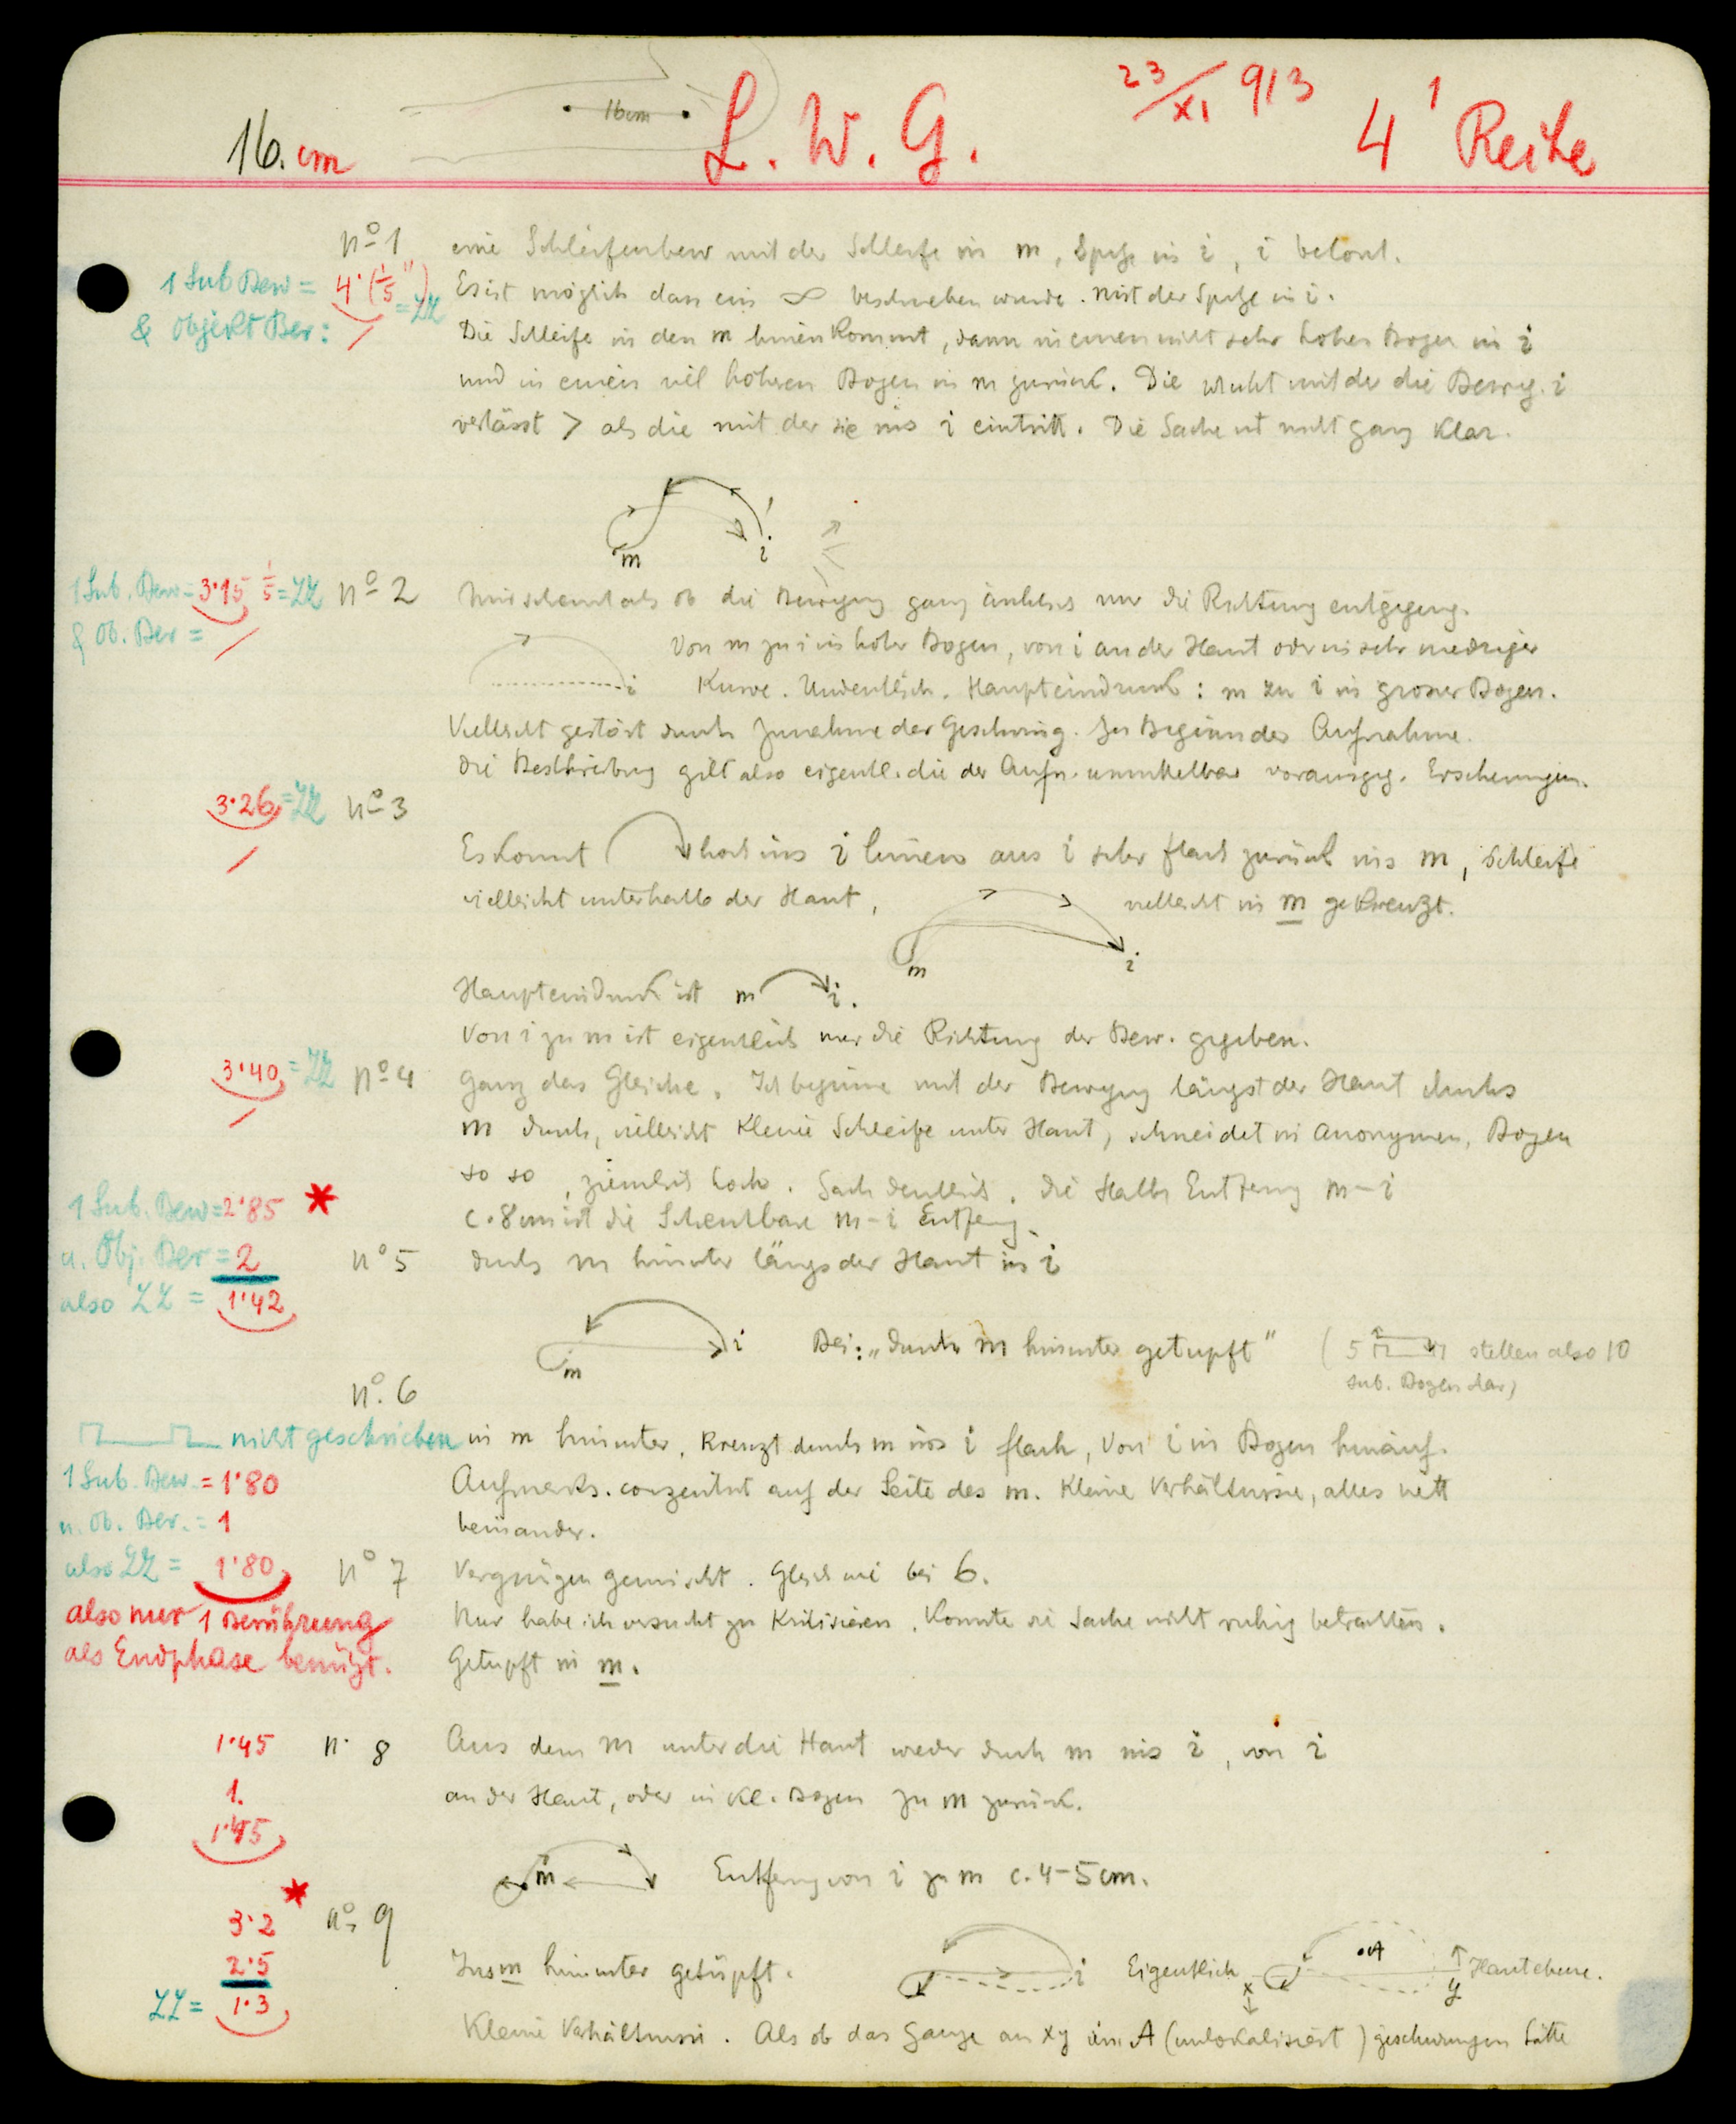 16 cm
16. cm
L. W. G.
23/XI 913
4¹ Reihe
nº 1
eine Schleifenbew mit der Schleife in m, Spitze in i, i betont.
1 Sub Bew = 4·(1/5") = ZZ
& Objekt Ber: /
Es ist möglich dass ein ∞ beschrieben wurde. Mit der Spitze in i.
Die Schleife in den m hinein kommt, dann in einen nicht sehr hohen Bogen in i
und in einem viel höheren Bogen in m zurück. Die Wucht mit der die Beweg. i
verlässt > als die mit der sie ins i eintritt. Die Sache ist nicht ganz klar.
m i
1 Sub. Bew = 3·15 1/5 = ZZ
& Ob. Ber = /
nº 2
Mir scheint als ob die Bewegung ganz ähnlich nur die Richtung entgegeng.
Von m zu i in hoher Bogen, von i an der Haut oder in sehr niedriger
i
Kurve. Undeutlich. Haupteindruck: m zu i in grosser Bogen.
Vielleicht gestört durch Zunahme der Geschwing. zu Beginn der Aufnahme.
Die Beschreibung gilt also eigentl. die der Aufn. unmittelbar vorausgeg. Erscheinungen.
3·26 = ZZ
/
nº 3
Es kommt hoch ins i hinein aus i sehr flach zurück ins m, Schleife
vielleicht unterhalb der Haut, vielleicht in m gekreuzt.
m i
Haupteindruck ist m i.
Von i zu m ist eigentlich nur die Richtung der Bew. gegeben.
3·40 = ZZ
/
nº 4
Ganz das Gleiche. Ich beginne mit der Bewegung längst der Haut durchs
m durch, vielleicht kleine Schleife unter Haut, schneidet in Anonymen, Bogen
so so, ziemlich hoch. Sach deutlich. Die Halbe Entfernung m – i
c. 8 cm ist die Scheinbare m – i Entfeng.
1 Sub. Bew = 2·85 *
u. Obj. Ber = 2
also ZZ = 1·42
nº 5
durch m hinunter längs der Haut ins i
m i
Bei: „durch m hinunter getupft"
( 5 stellen also 10
sub. Bogen dar)
nº. 6
nicht geschrieben
in m hinunter, kreuzt durch m ins i flach, Von i in Bogen hinauf.
1 Sub. Bew. = 1·80
u. Ob. Ber. = 1
also ZZ = 1·80
also nur 1 Berührung
als Endphase benüzt.
Aufmerks. conzentrirt auf der Seite des m. Kleine Verhältnisse, alles nett
beinander.
nº 7
Vergnügen gemischt. Gleich wie bei 6.
Nur habe ich versucht zu kritisieren. Konnte die Sache nicht ruhig betrachten.
Getupft in m.
1·45
1.
1·45
n. 8
Aus dem m unter die Haut wieder durch m ins i, von i
an der Haut, oder in kl. Bogen zu m zurück.
m
Entfeng von i zu m c. 4–5 cm.
*
3·2
2·5
ZZ = 1·3
nº. 9
Ins m hinunter getüpft.
i
Eigentlich
x
A
y
Hautebene.
Kleine Verhältnisse. Als ob das Ganze an xy um A (unlokalisiert) geschwungen hätte